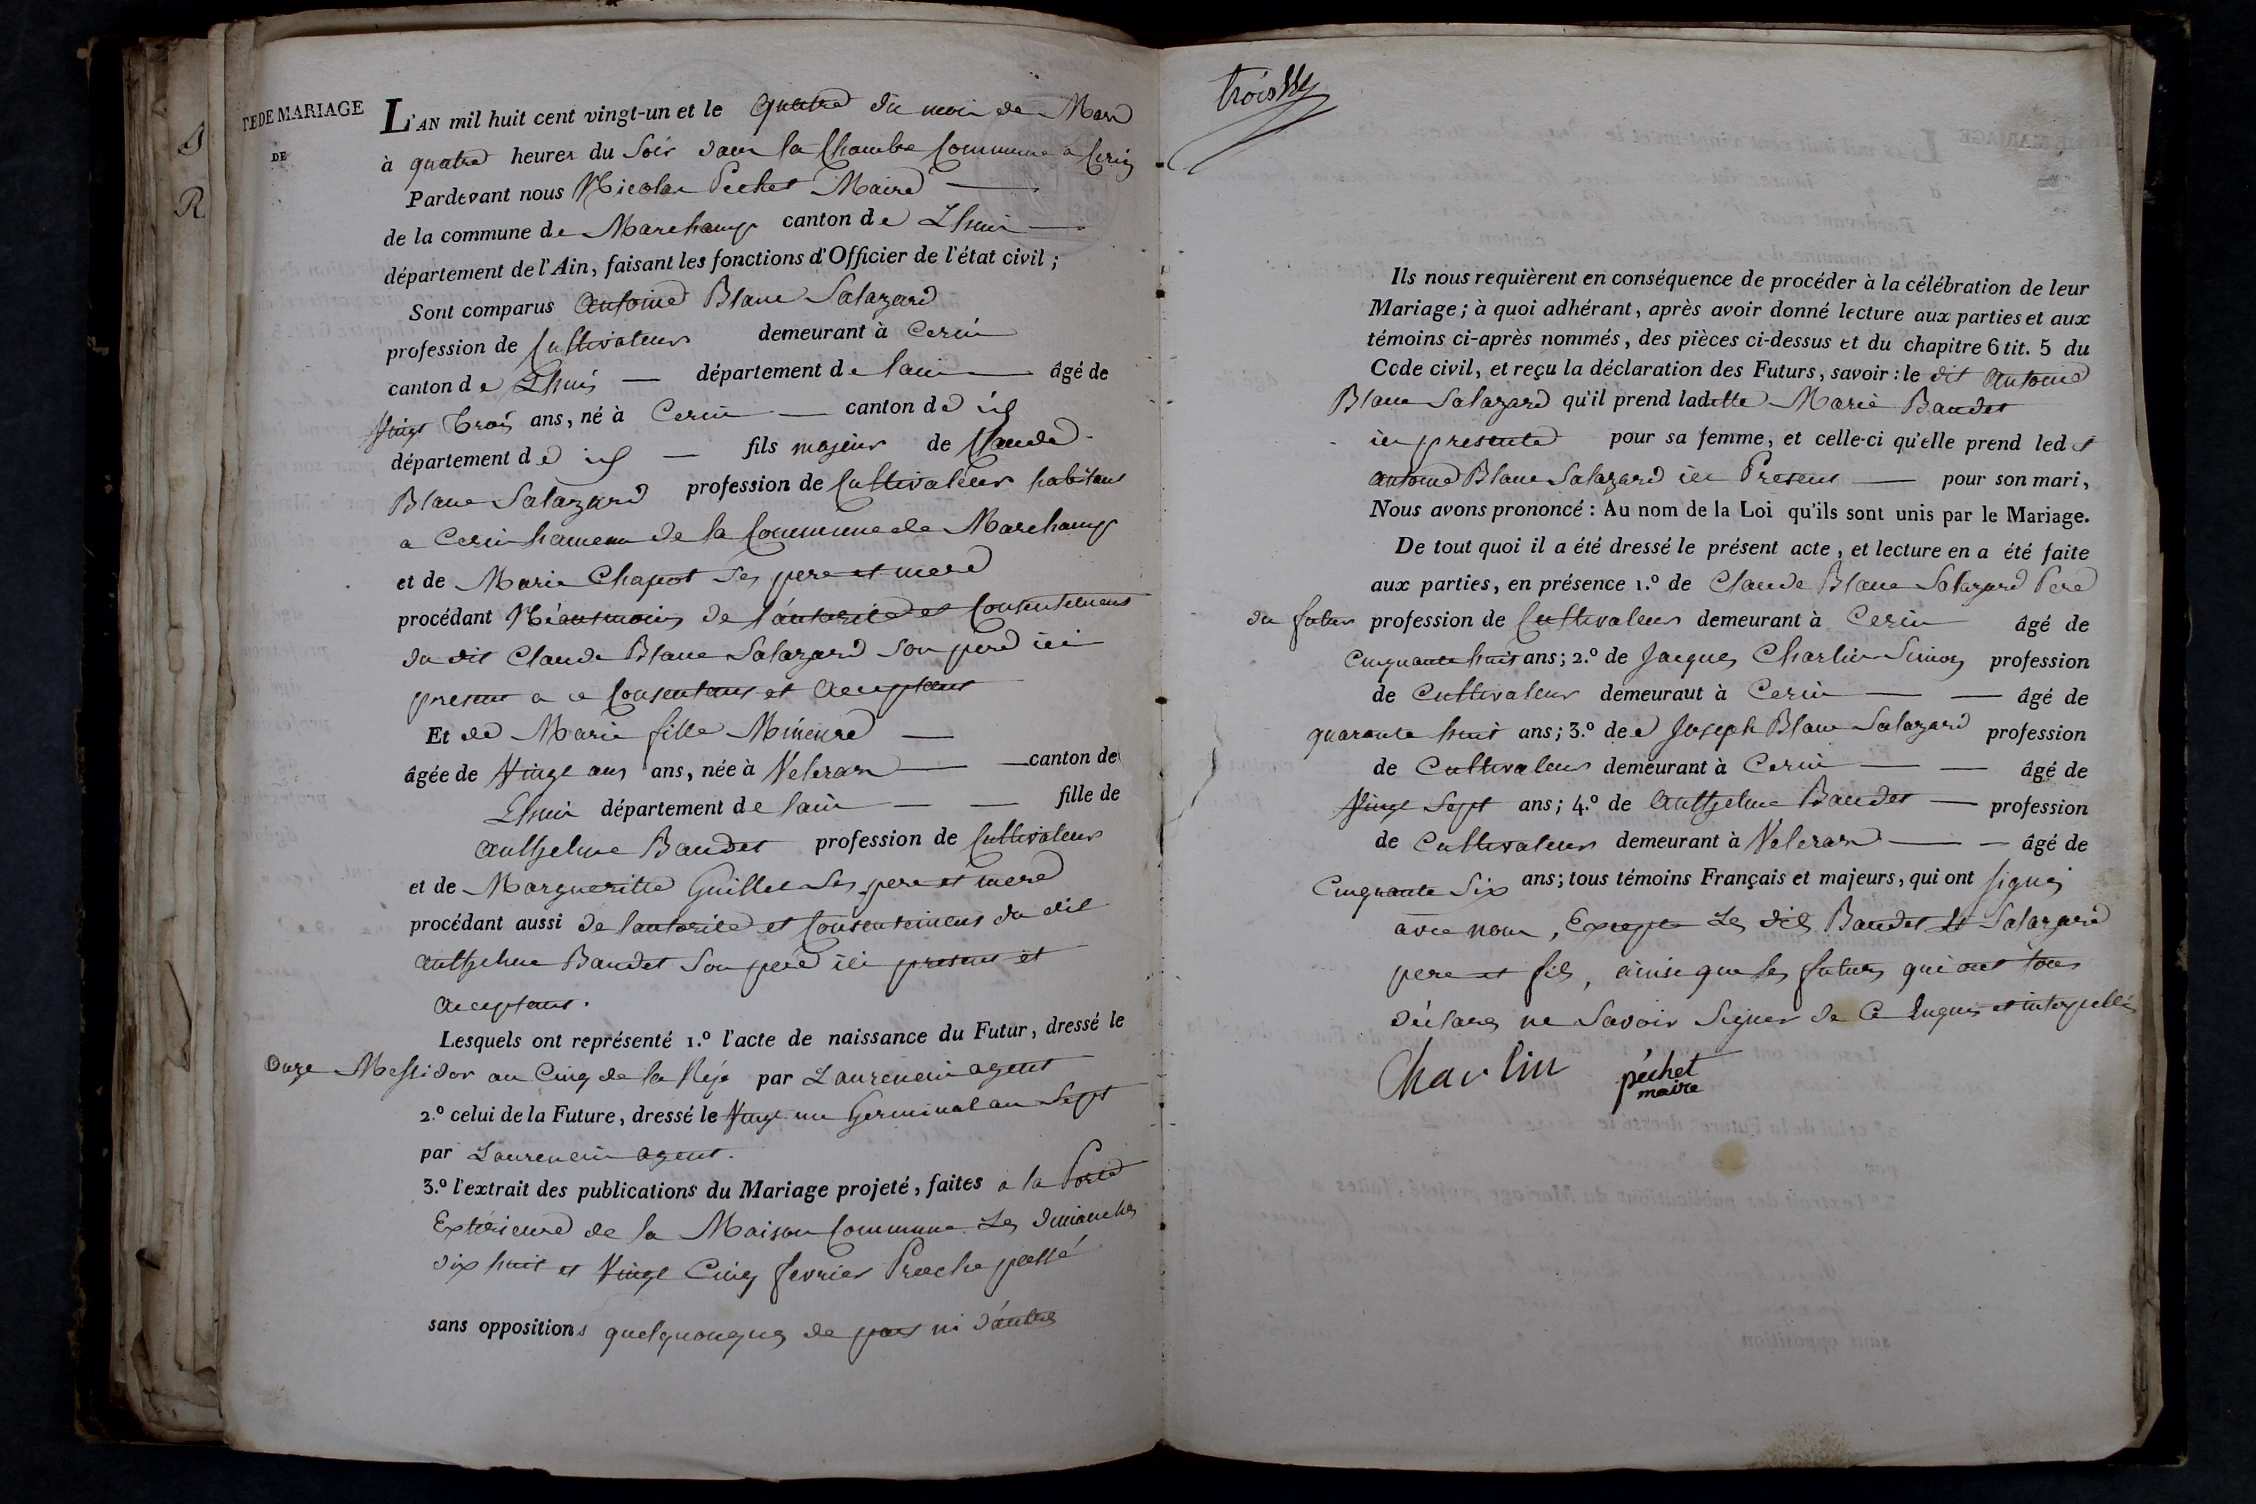 TE DE MARIAGE
DE
L'AN mil huit cent vingt-un et le quatre du mois de Mars
à quatre heures du Soir dans la Chambre Commune a Cerin
Pardevant nous Nicolas Pechet Maire
de la commune de Marchamp canton de Lhuis
département de l'Ain, faisant les fonctions d'Officier de l'état civil ;
Sont comparus Antoine Blanc Salazard
profession de Cultivateur demeurant à Cerin
canton de Lhuis département de lain âgé de
Vingt Trois ans, né à Cerin canton de id
département de id fils majeur de Claude
Blanc Salazard profession de Cultivateur habitant
a Cerin hameau de la Commune de Marchamp
et de Marie Chapot Ses pere et mere
procédant Néantmoins de l'autorité et Consentement
du dit Claude Blanc Salazard Son pere ici
present a ce Consentant et Acceptant
Et de Marie fille Mineure
âgée de Vingt ans ans, née à Veleran canton de
Lhuis département de lain fille de
Anthelme Baudet profession de Cultivateur
et de Margueritte Guillet Ses pere et mere
procédant aussi de lautorité et Consentement du dit
Anthelme Baudet Son pere ici present et
Acceptant.
Lesquels ont représenté 1.º l'acte de naissance du Futur, dressé le
Onze Messidor an Cinq de la Rép. par Laurencin agent
2.º celui de la Future, dressé le Vingt un Germinal an Sept
par Laurencin agent.
3.º l'extrait des publications du Mariage projeté, faites a la Porte
Extérieure de la Maison Commune Les dimanches
dix huit et Vingt Cinq fevrier Proche passé
sans oppositions quelquonques de part ni d'autre
Ils nous requièrent en conséquence de procéder à la célébration de leur
Mariage ; à quoi adhérant, après avoir donné lecture aux parties et aux
témoins ci-après nommés, des pièces ci-dessus et du chapitre 6 tit. 5 du
Code civil, et reçu la déclaration des Futurs, savoir : le dit Antoine
Blanc Salazard qu'il prend ladette Marie Baudet
ici presente pour sa femme, et celle-ci qu'elle prend ledt
Antoine Blanc Salazard ici Present pour son mari,
Nous avons prononcé : Au nom de la Loi qu'ils sont unis par le Mariage.
De tout quoi il a été dressé le présent acte, et lecture en a été faite
aux parties, en présence 1.º de Claude Blanc Salazard Pere
du futur profession de Cultivateur demeurant à Cerin âgé de
Cinquante huit ans ; 2.º de Jacques Charlin Simon profession
de Cultivateur demeuraut à Cerin âgé de
quarante huit ans ; 3.º de Joseph Blanc Salazard profession
de Cultivateur demeurant à Cerin âgé de
Vingt Sept ans ; 4.º de Anthelme Baudet profession
de Cultivateur demeurant à Veleran âgé de
Cinquante Six ans ; tous témoins Français et majeurs, qui ont Signé
avec nous, Excepte Les dits Baudet et Salazard
pere et fils, ainsi que les futurs qui ont tous
déclaré ne Savoir Signer de Ce Enquis et interpellés
Charlin péchet
maire